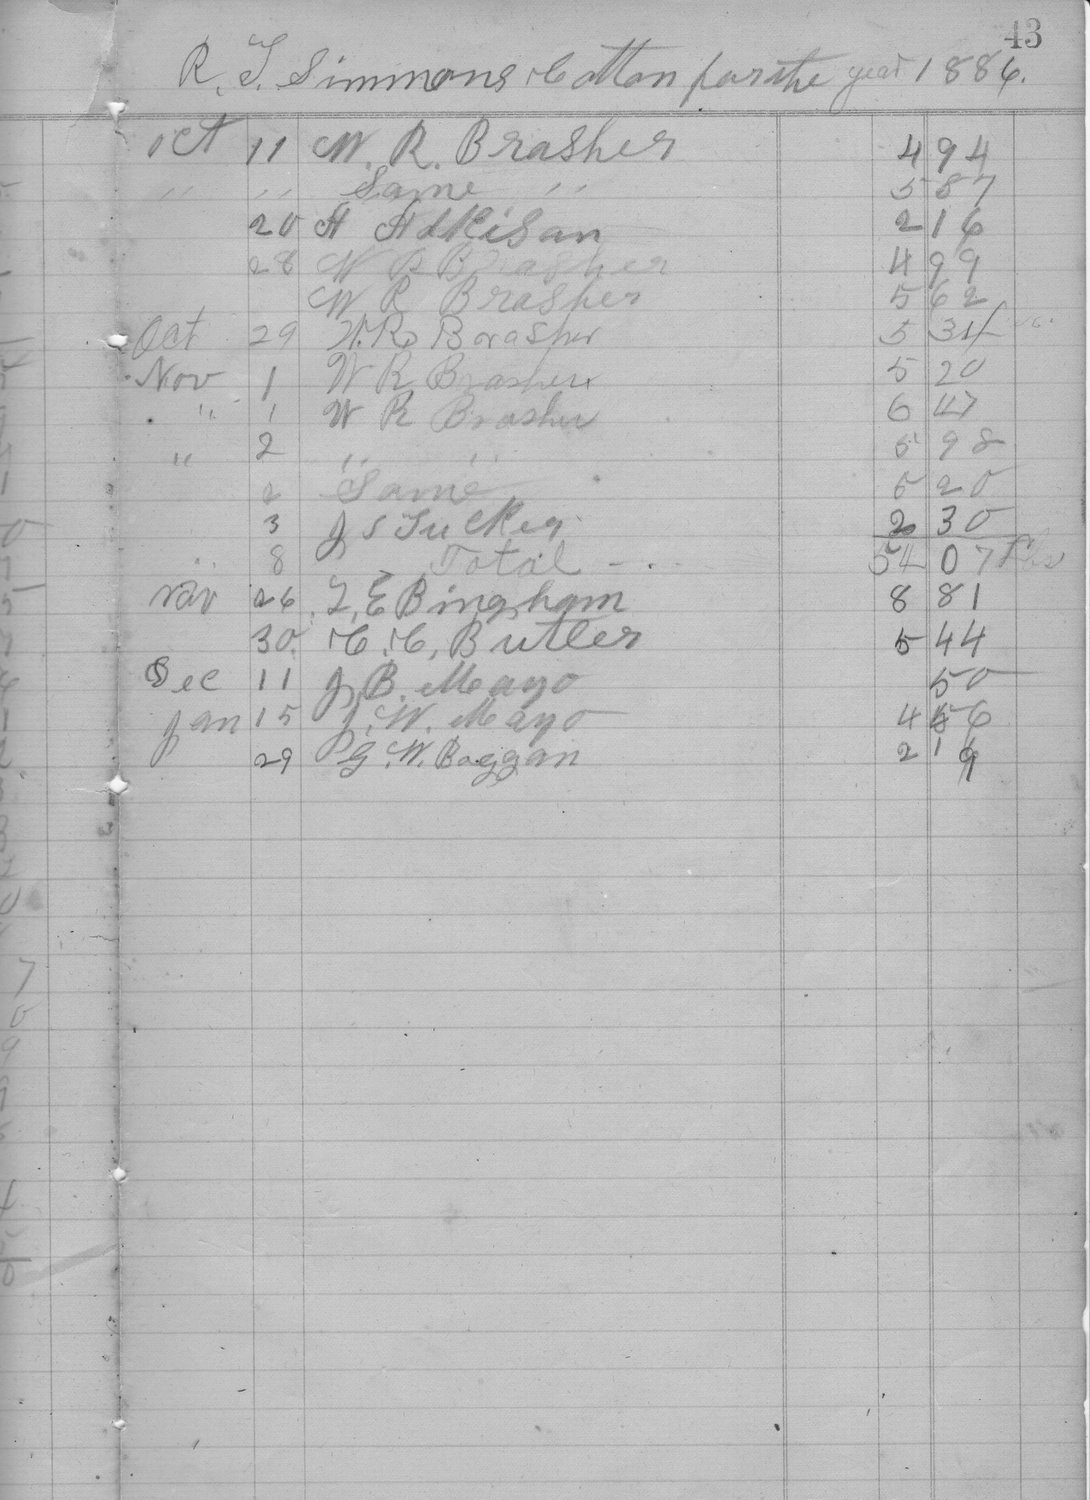 43
R. T. Simmons Cotton for the year 1886.
Oct 11 W. R. Brasher 494
" " Same " 587
20 A Adkison 216
28 W R Brasher 499
W R Brasher 562
Oct 29 W. R. Brasher 534
Nov 1 W R Brasher 520
" 1 W R Brasher 647
" 2 " " 598
2 Same 520
3 J S Tucker 230
" 8 Total 5407 lbs
Nov 26 T. E Bingham 881
30. C. C. Butler 544
Dec 11 J. B. Mayo 50
Jan 15 J. W. Mayo 456
29 G. W. Boggan 219